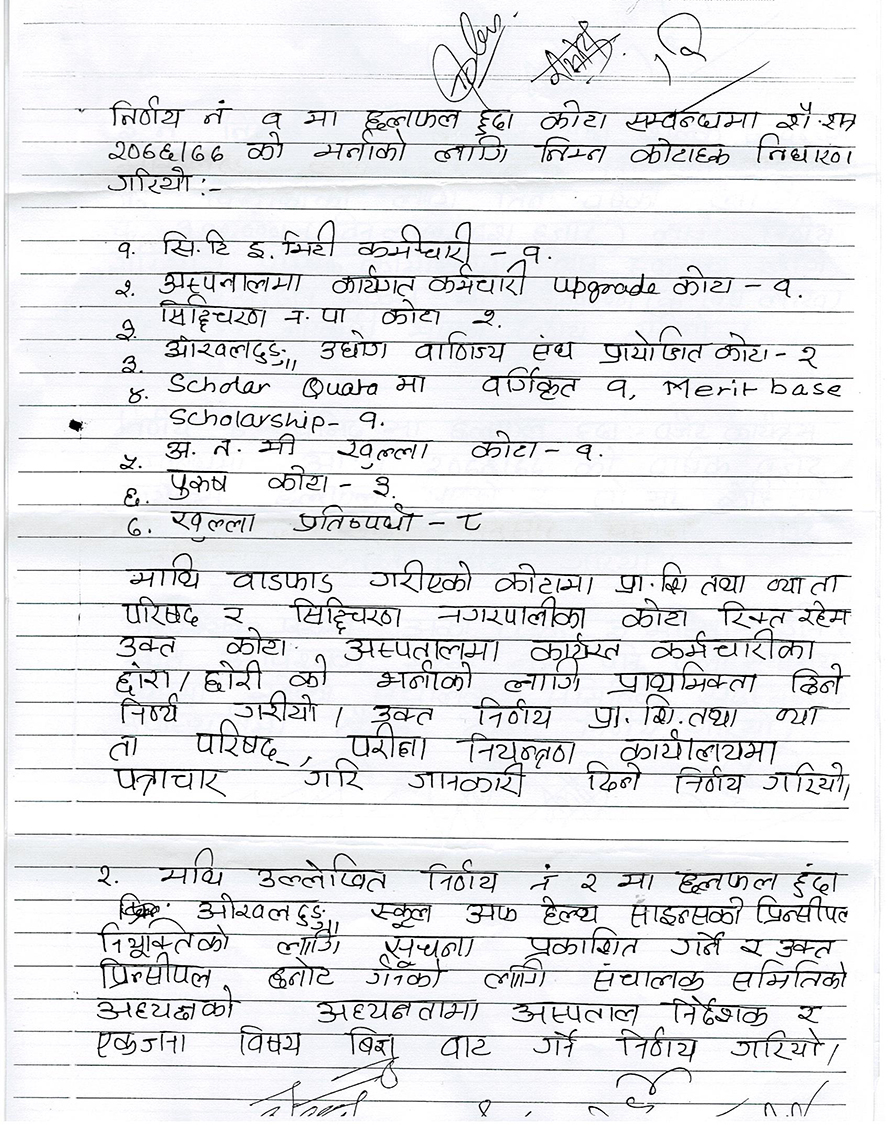 निर्णय नं १ मा छलफल हुँदा कोटा सम्वन्धमा शै.सत्र
२०७६।७७ को भर्नाको लागि निम्न कोटाहरु निधारण
गरियो:-
१. सि.टि इ.भिटी कर्मचारी - १.
२. अस्पतालमा कार्यगत कर्मचारी upgrade कोटा - १.
३. सिद्दिचरण न.पा कोटा २.
३. ओखलढुङ्गा उद्योग वाणिज्य संघ प्रायोजित कोटा - २
४. Scholar Quata मा वर्गिकृत १, Merit base
Scholarship - १.
५. अ.न.मी खुल्ला कोटा - १.
६. पुरुष कोटा - ३.
७. खुल्ला प्रतिष्पर्धा - ८
माथि वाडफाड गरीएको कोटामा प्रा.शि तथा व्या ता
परिषद र सिद्दिचरण नगरपालीका कोटा रिक्त रहेम
उक्त कोटा अस्पतालमा कार्यरत कर्मचारीका
छोरा/छोरी को भर्नाको लागि प्राथमिक्ता दिने
निर्णय गरीयो। उक्त निर्णय प्रा.शि.तथा व्या
ता परिषद, परीक्षा नियन्त्रण कार्यालयमा
पत्राचार गरि जानकारी दिने निर्णय गरियो।
२. मथि उल्लेखित निर्णय नं २ मा छलफल हुंदा
ओखलढुङ्गा स्कूल अफ हेल्थ साइन्सको प्रिन्सीपल
नियूक्तिको लागि सूचना प्रकाशित गर्ने र उक्त
प्रिन्सीपल छनोट गर्नको लागि संचालक समितिको
अध्यक्षको अध्यक्षतामा अस्पताल निर्देशक र
एकजना विषय बिज्ञ वाट गर्ने निर्णय गरियो।